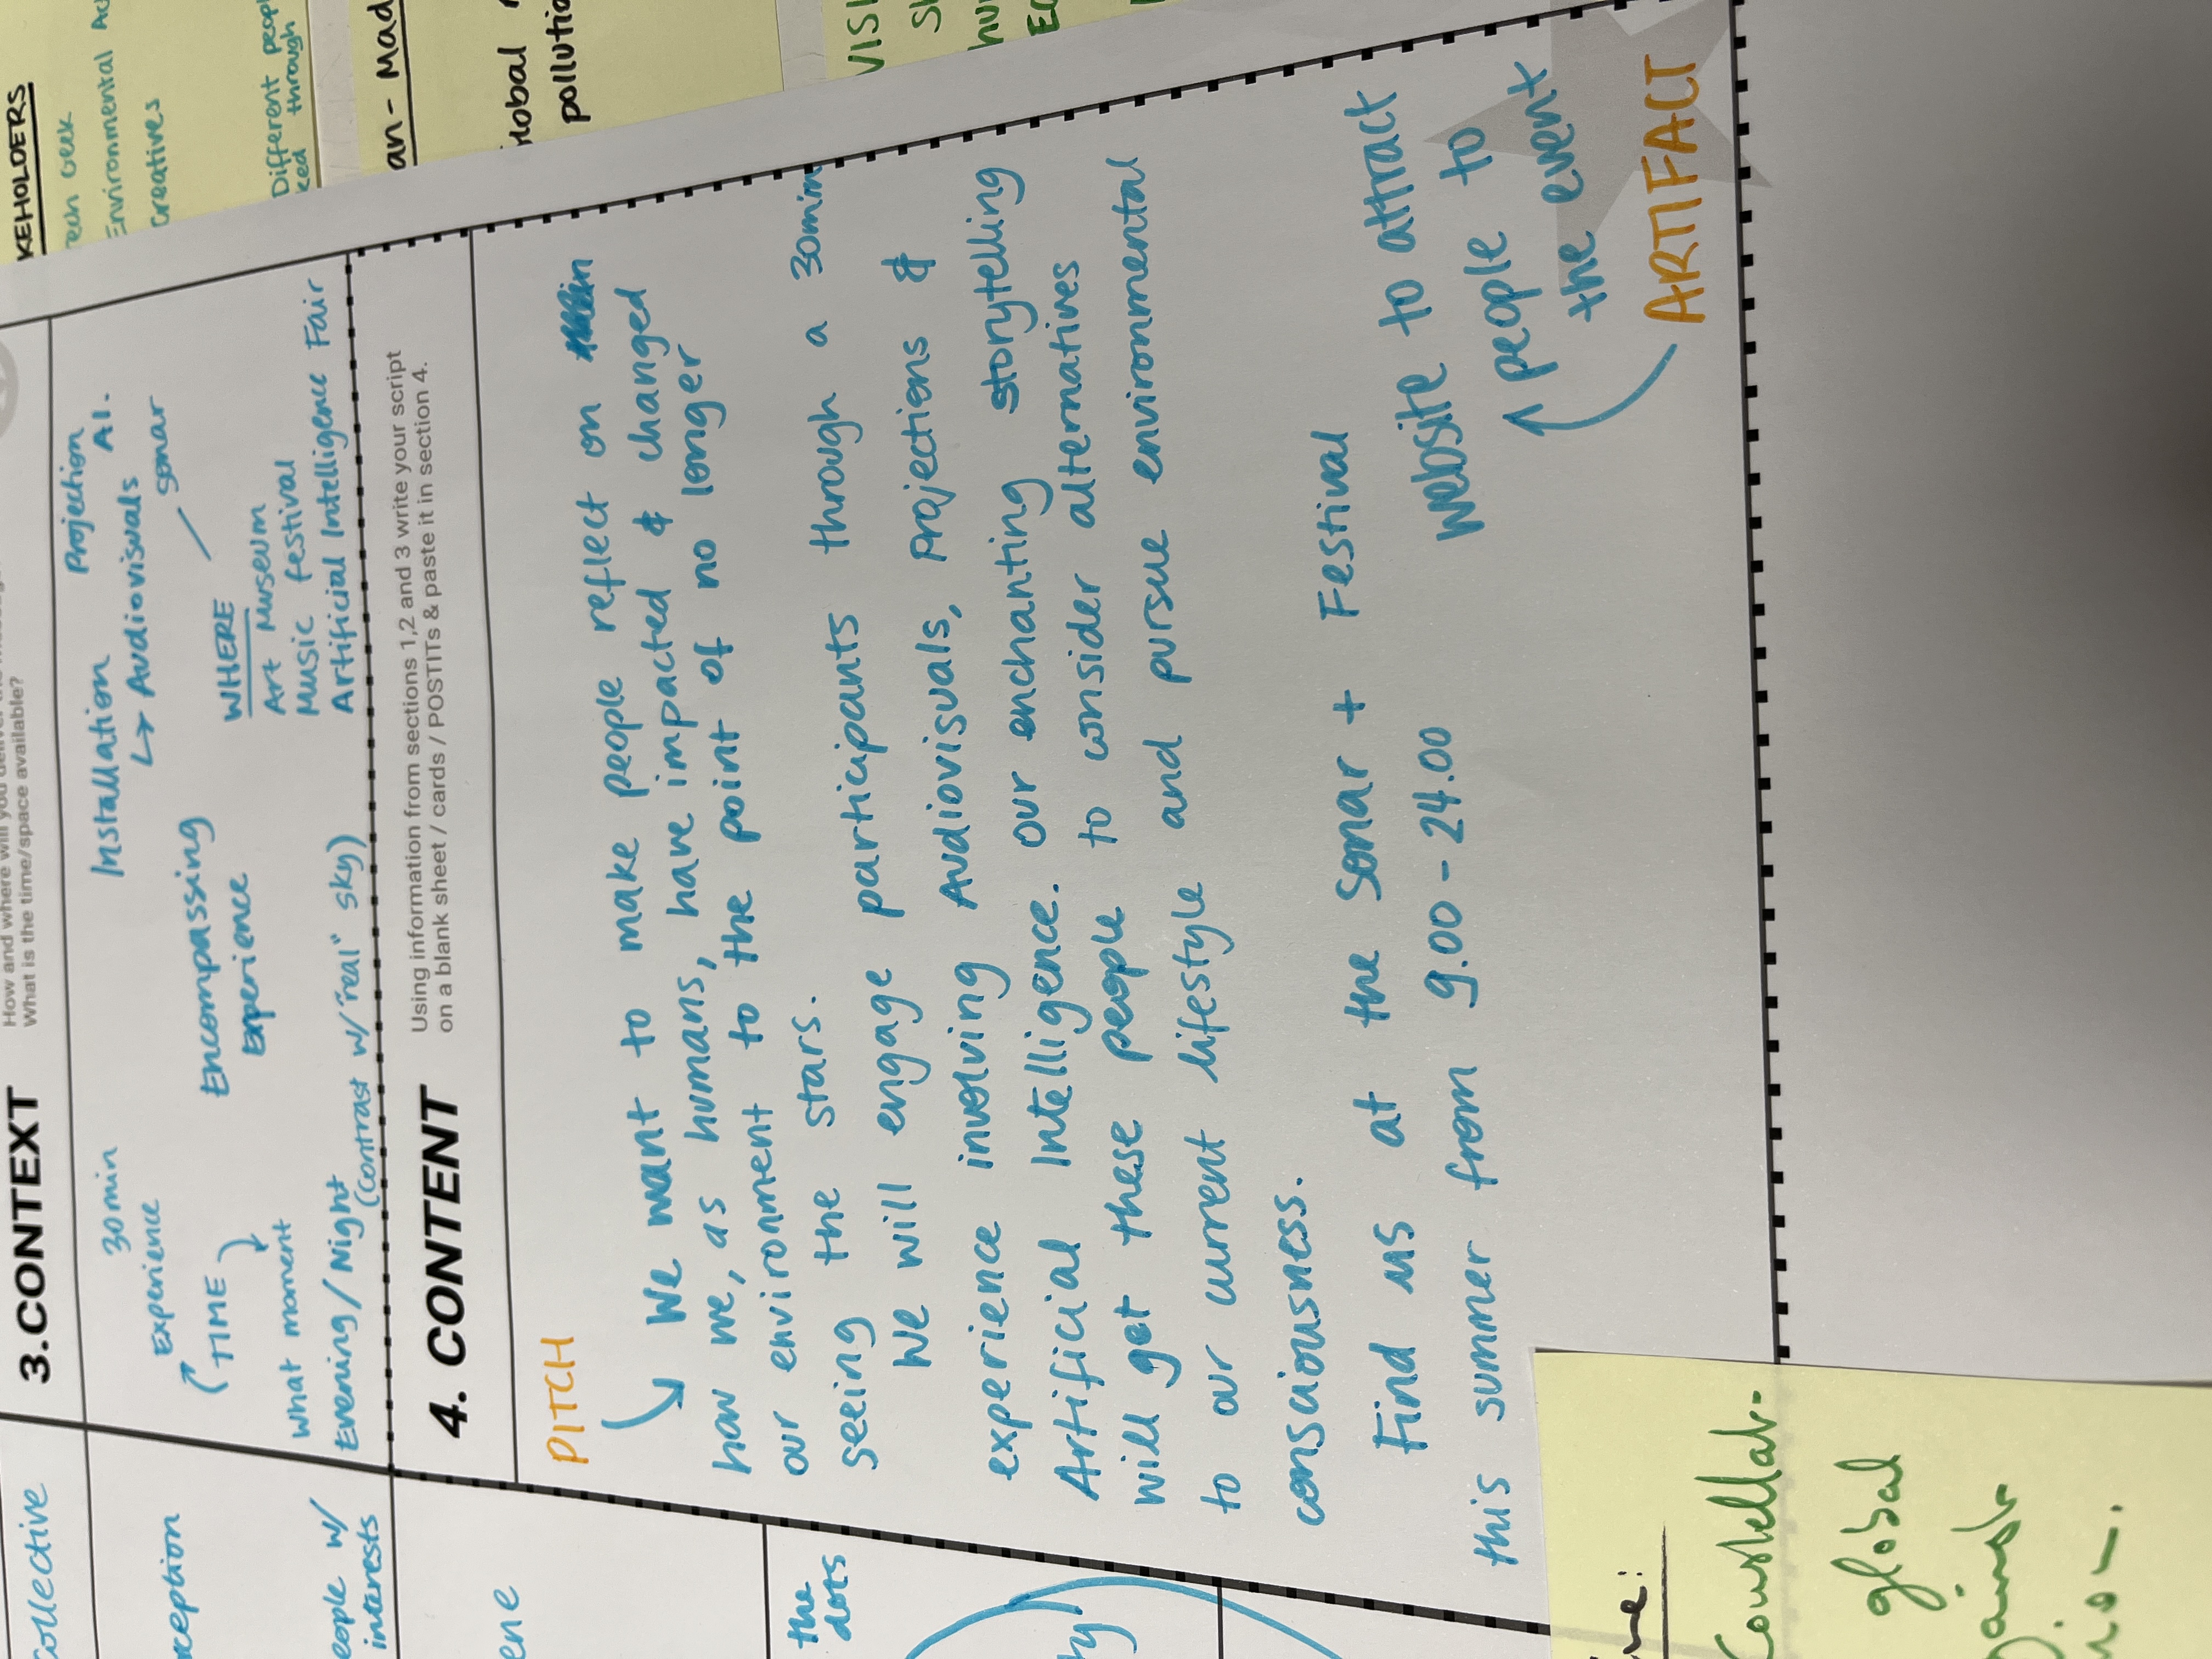 collective
3.CONTEXT
How and where will you
What is the time/space available?
30min
Experience
TIME
What moment
Evening/Night
(contrast w/ "real" sky)
Encompassing
Experience
Installation
↳ Audiovisuals
Projection
AI.
sonar
WHERE
Art Museum
Music festival
Artificial Intelligence Fair
w/
interests
the
dots
4. CONTENT
Using information from sections 1,2 and 3 write your script
on a blank sheet / cards / POSTITs & paste it in section 4.
PITCH
We want to make people reflect on
how we, as humans, have impacted & changed
our environment to the point of no longer
seeing the stars.
We will engage participants through a 30min
experience involving Audiovisuals, Projections &
Artificial Intelligence. Our enchanting storytelling
will get these people to consider alternatives
to our current lifestyle and pursue environmental
consciousness.
Find us at the Sonar + Festival
this summer from 9.00 - 24.00
website to attract
people to
the event
ARTIFACT
KEHOLDERS
Geek
Environmental
Creatives
Different
through
an-Mad
pollutio
Constellat-
global